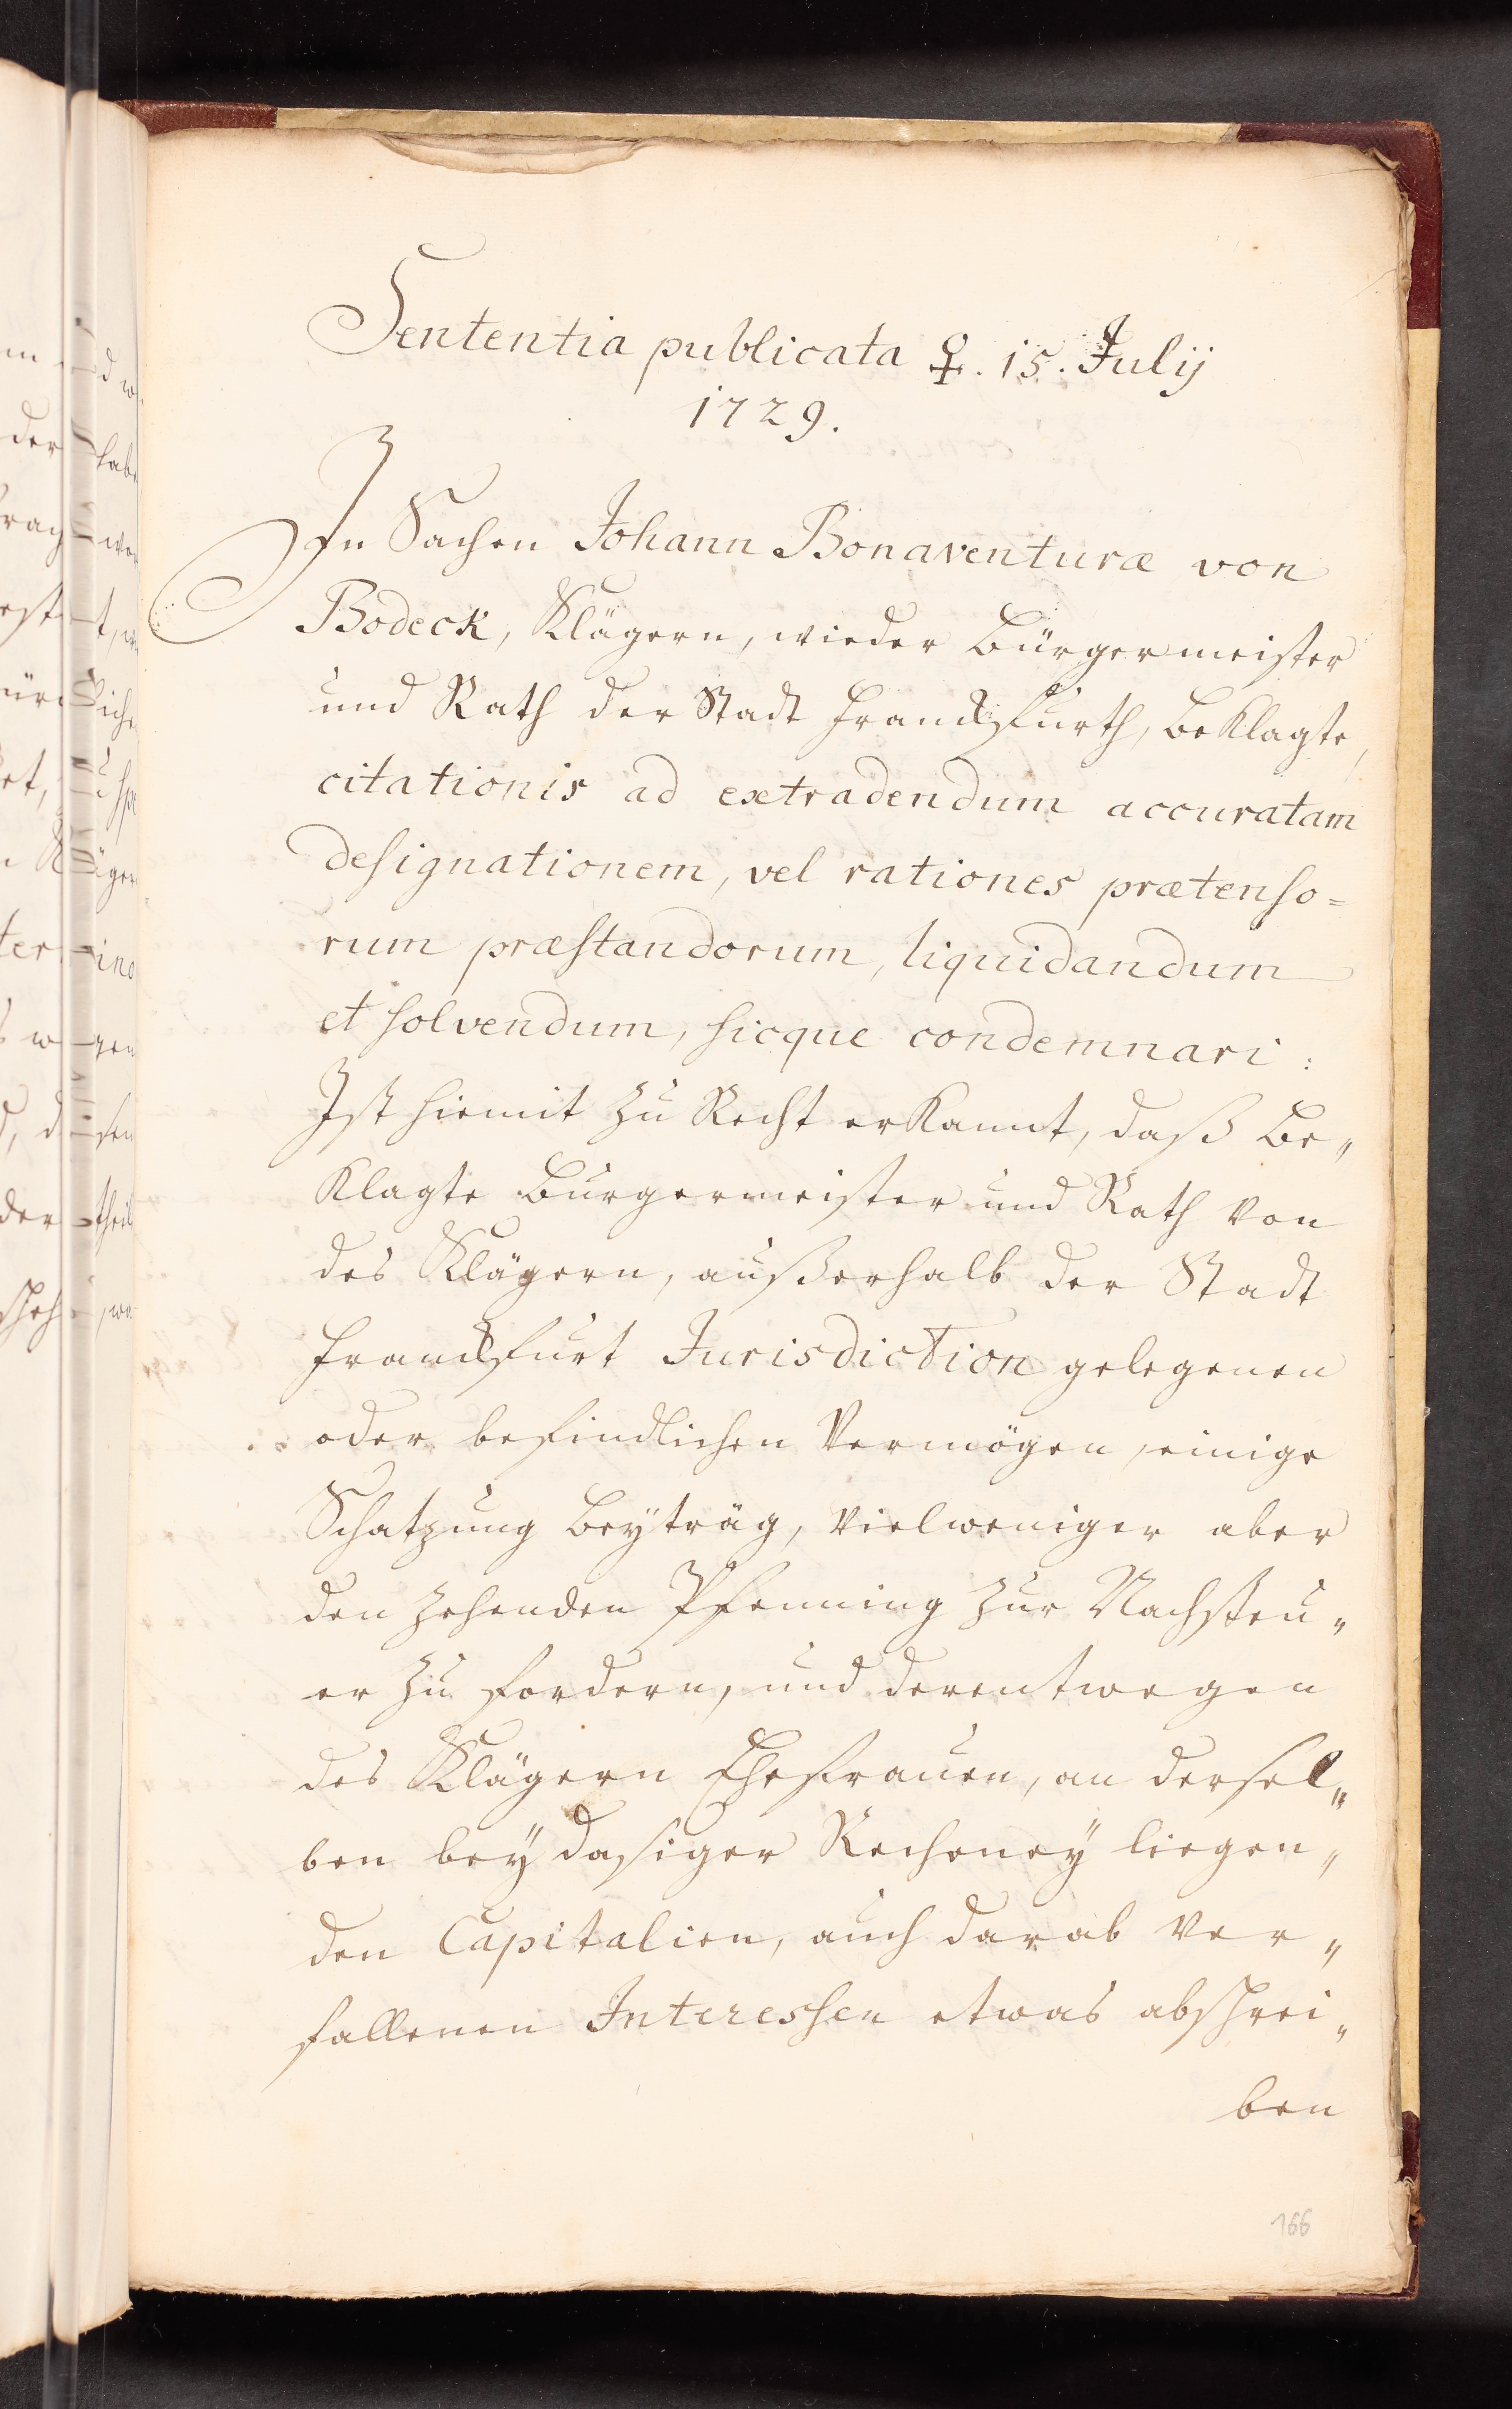 Sententia publicata ♀. 15. Julij
1729.
In Sachen Johann Bonaventuræ von
Bodeck, Klägern, wieder Bürgermeister
und Rath der Stadt Franckfurth, beklagte,
citationis ad extradendum accuratam
designationem, vel rationes prætenso=
rum præstandorum, liquidandum
et solvendum, sicque condemnari:
Ist hiemit zu Recht erkannt, daß Be„
klagte Burgermeister und Rath von
des Klägern, außerhalb der Stadt
Franckfurt Jurisdiction gelegenen
oder befindlichen Vermögen, einige
Schatzung beyträg, vielweniger aber
den zehenden Pfenning zur Nachsteu„
er zu fordern, und derentwegen
des Klägern Ehefrauen, an dersel„
ben bey dasiger Recheney liegen„
den Capitalien, auch darab ver„
fallenen Interessen etwas abschrei„
ben
166